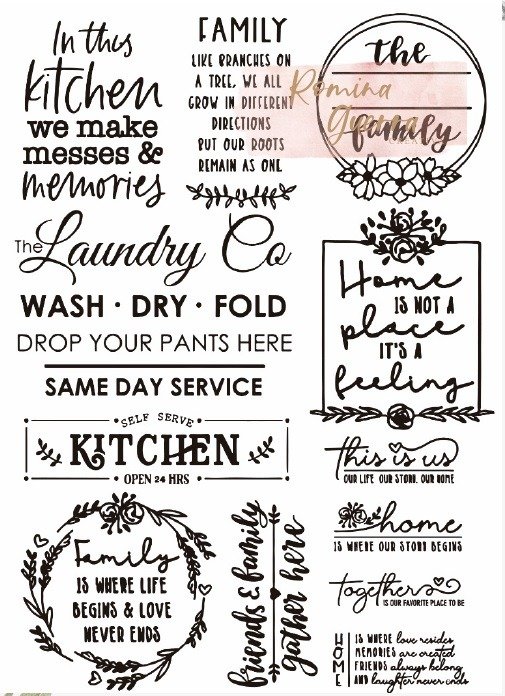 In this
kitchen
we make
messes &
memories
FAMILY
LIKE BRANCHES ON
A TREE, WE ALL
GROW IN DIFFERENT
DIRECTIONS
BUT OUR ROOTS
REMAIN AS ONE
the
family
Romina
Guerra
The Laundry Co
WASH · DRY · FOLD
DROP YOUR PANTS HERE
SAME DAY SERVICE
Home
IS NOT A
place
IT'S A
feeling
SELF SERVE
KITCHEN
OPEN 24 HRS
this is us
OUR LIFE. OUR STORY. OUR HOME
home
IS WHERE OUR STORY BEGINS
together
IS OUR FAVORITE PLACE TO BE
Family
IS WHERE LIFE
BEGINS & LOVE
NEVER ENDS
friends & family
gather here
HOME
IS WHERE love resides
MEMORIES are created
FRIENDS always belong
AND laughter never ends